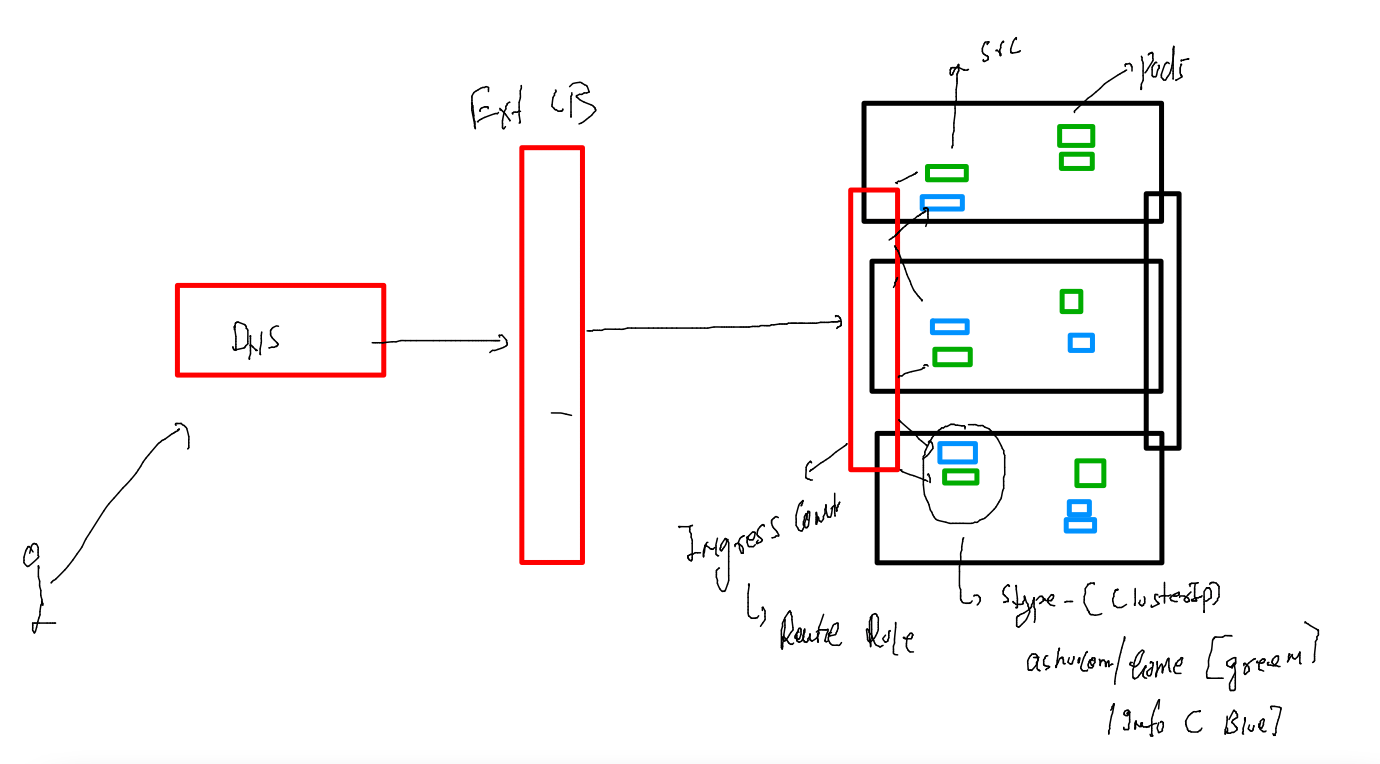 src
Pods
Ext LB
DNS
Ingress Cont
Route Rule
Stype - (ClusterIp)
ashu.com/home [green]
/Info [Blue]